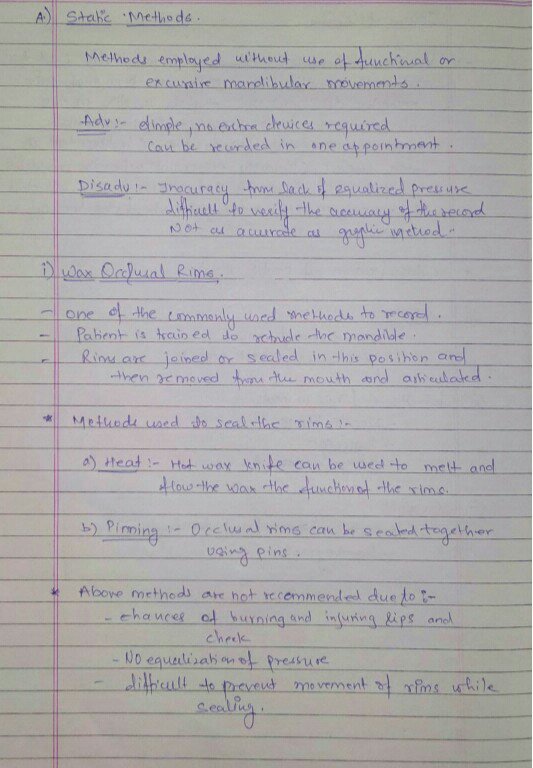 A) Static Methods.
Methods employed without use of functional or
excursive mandibular movements.
Adv :- Simple, no extra devices required
Can be recorded in one appointment.
Disadv :- Inacuracy from lack of equalized pressure
difficult to verify the accuracy of the record
Not as accurate as graphic method -
i) Wax Occlusal Rims.
- one of the commonly used methods to record.
- Patient is trained to retrude the mandible.
- Rims are joined or sealed in this position and
then removed from the mouth and articulated.
* Methods used to seal the rims :-
a) Heat :- Hot wax knife can be used to melt and
flow the wax the function of the rims.
b) Pinning :- Occlusal rims can be sealed together
using pins.
* Above methods are not recommended due to :-
- chances of burning and injuring lips and
cheek
- No equalization of pressure
- difficult to prevent movement of rims while
sealing.